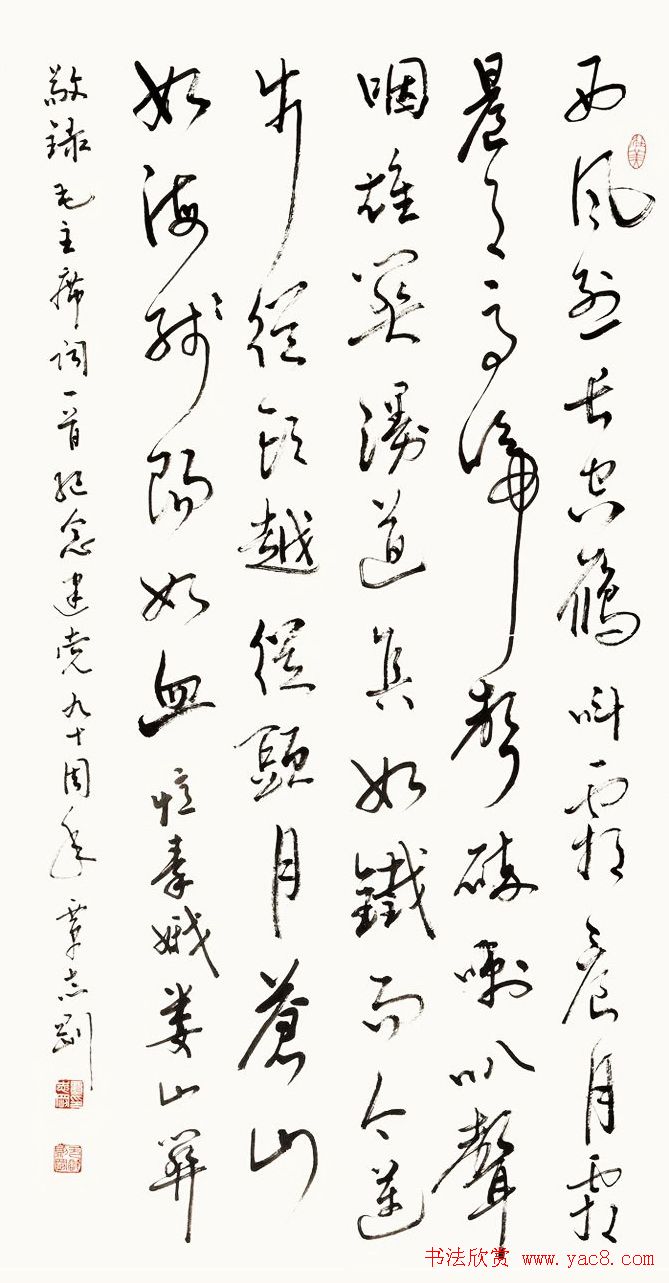 西风烈长空鴈叫霜晨月霜
晨月马蹄声碎喇叭聲
咽雄关漫道真如鐵而今邁
步從头越從頭月蒼山
如海残阳如血 憶秦娥娄山关
敬録毛主席词一首纪念建党九十周年 覃志刚
书法欣赏 www.yac8.com